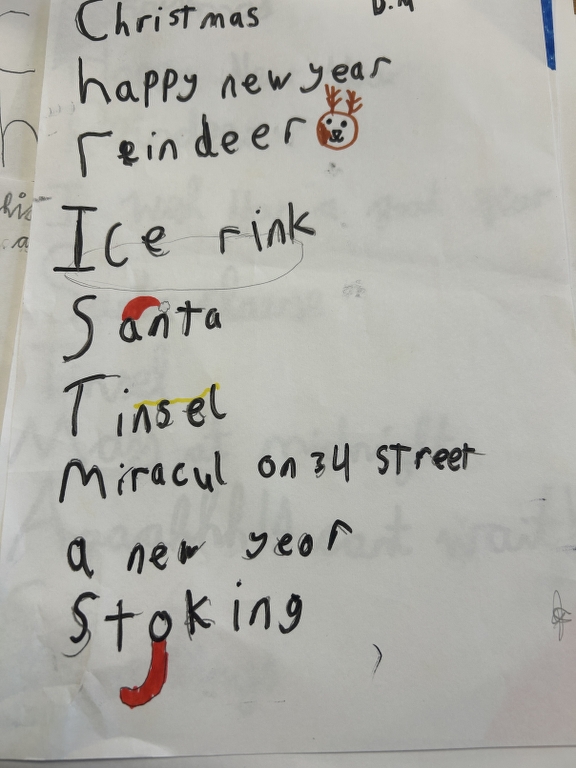 Christmas D.M
happy new year
reindeer
Ice rink
Santa
Tinsel
Miracul on 34 street
a new year
Stoking